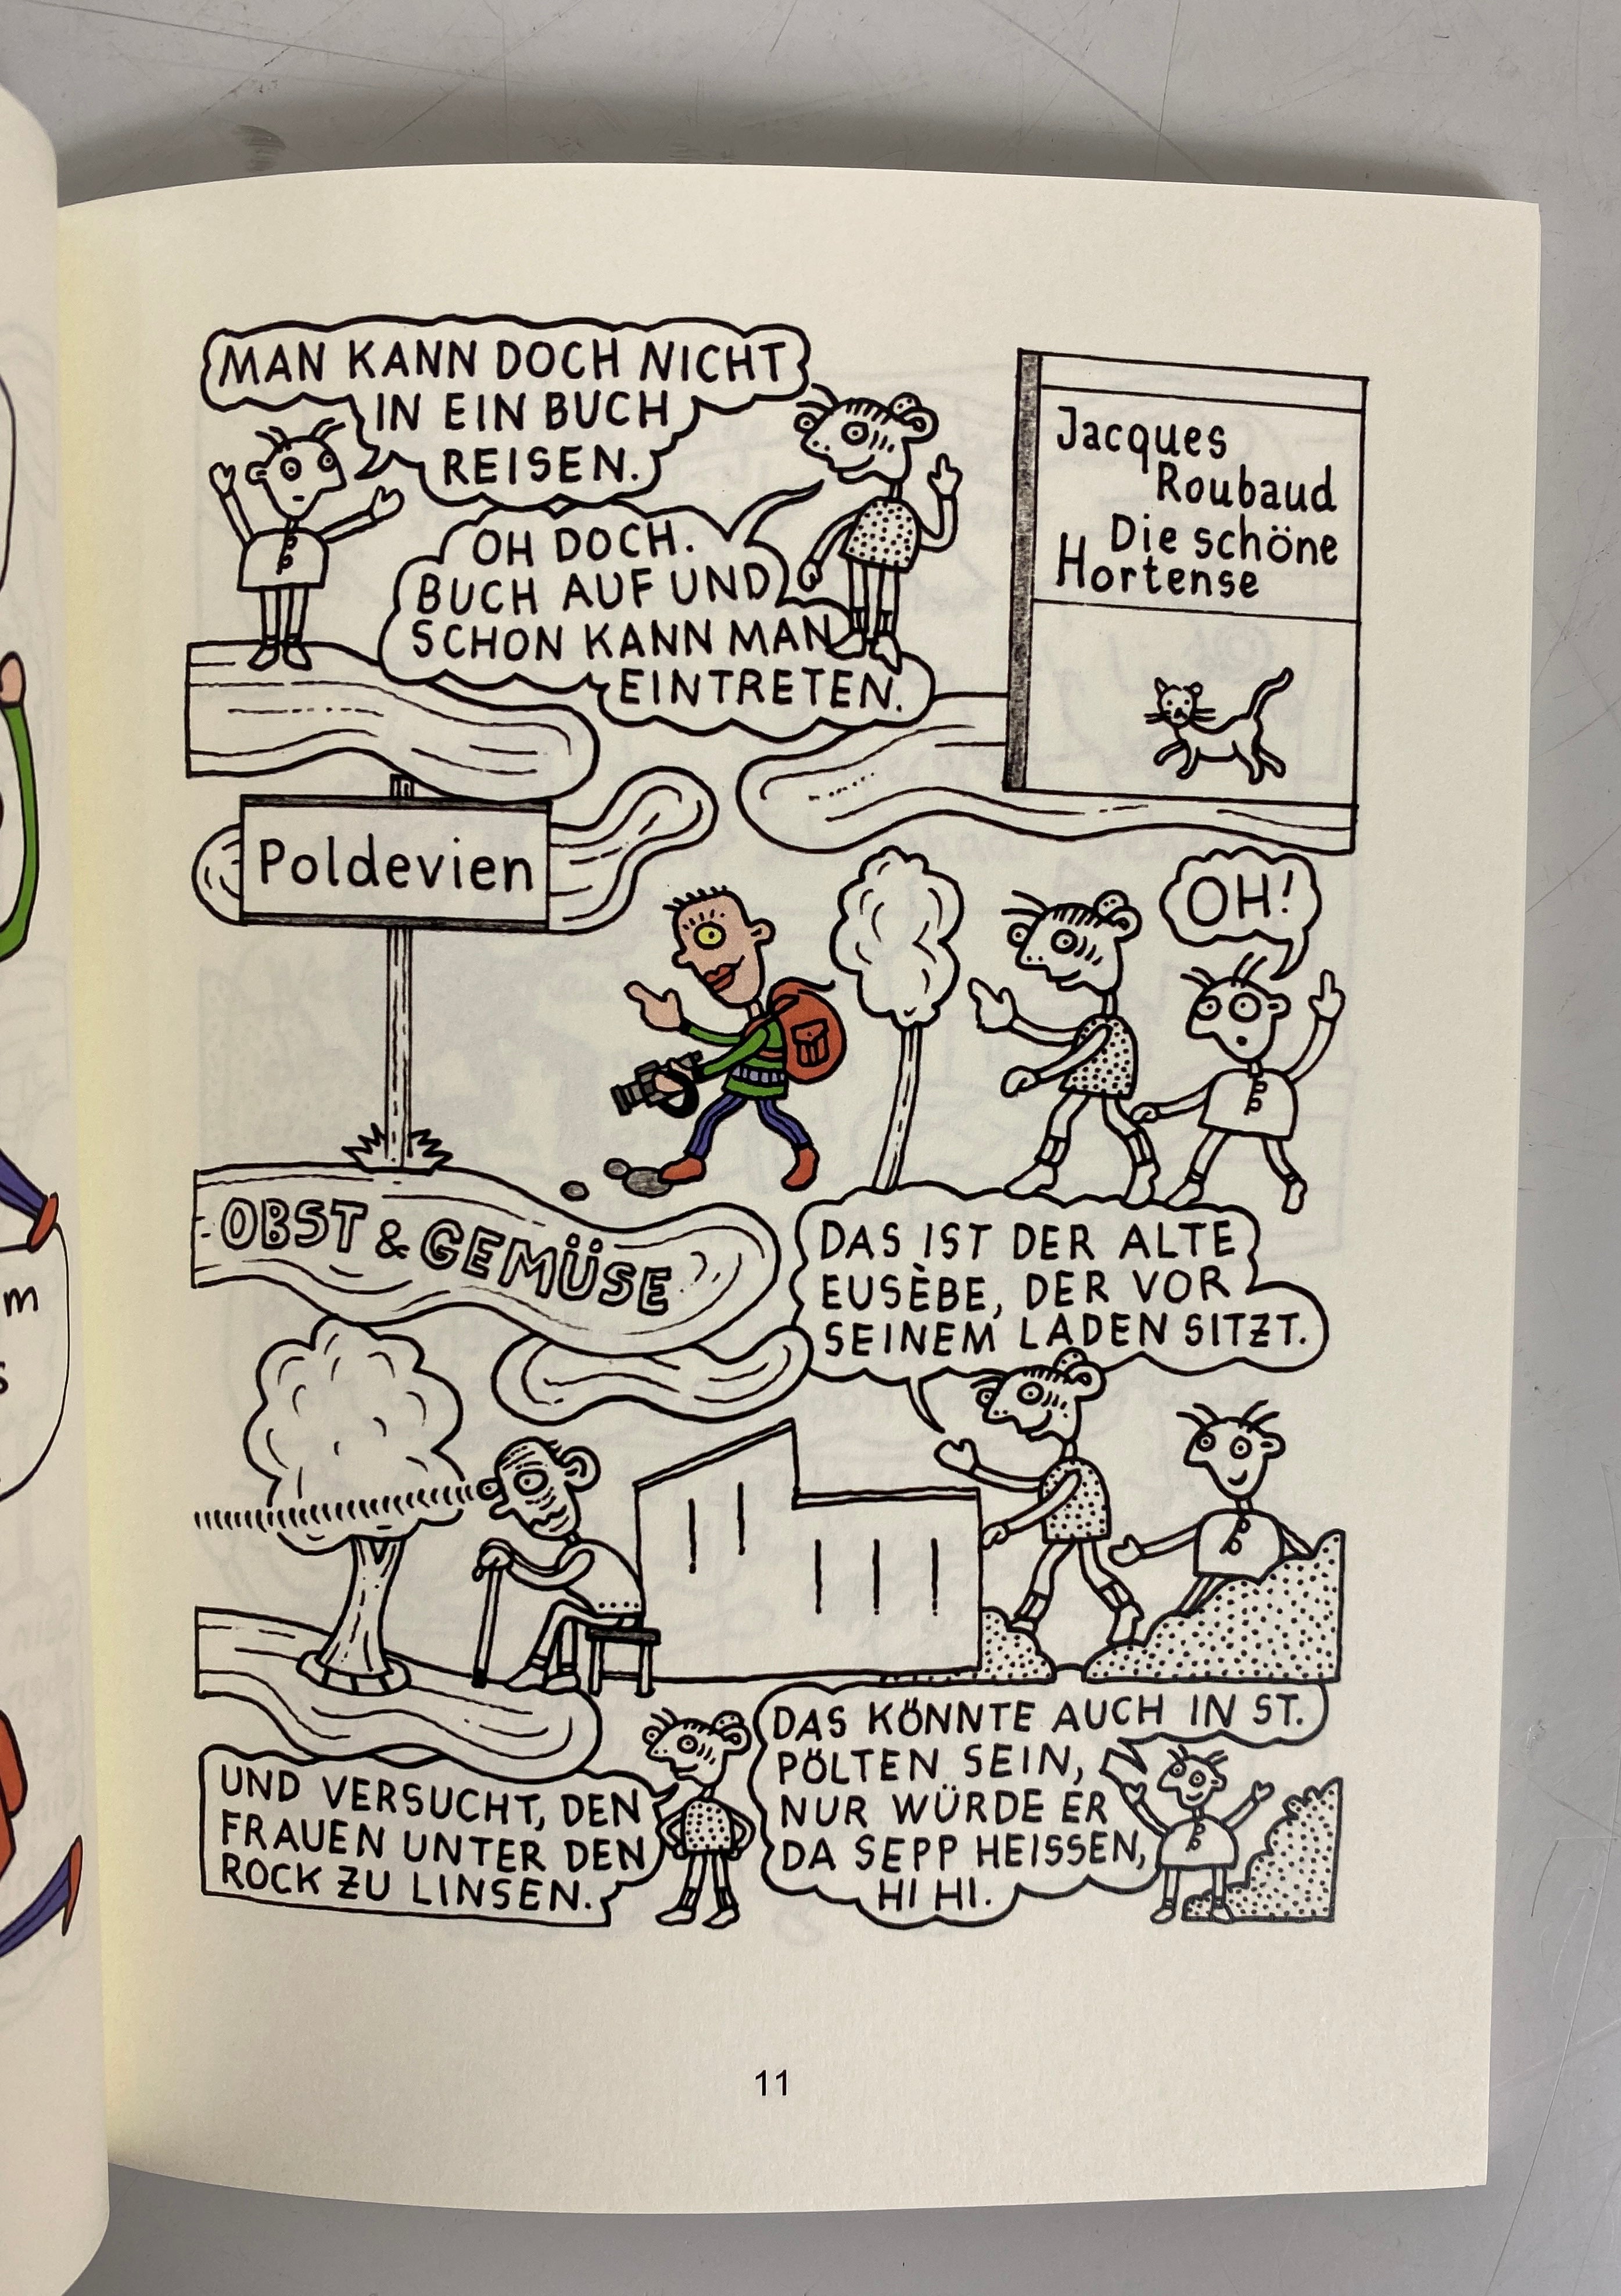 MAN KANN DOCH NICHT
IN EIN BUCH
REISEN.
OH DOCH.
BUCH AUF UND
SCHON KANN MAN
EINTRETEN.
Jacques
Roubaud
Die schöne
Hortense
Poldevien
OH!
OBST & GEMÜSE
DAS IST DER ALTE
EUSÈBE, DER VOR
SEINEM LADEN SITZT.
UND VERSUCHT, DEN
FRAUEN UNTER DEN
ROCK ZU LINSEN.
DAS KÖNNTE AUCH IN ST.
PÖLTEN SEIN,
NUR WÜRDE ER
DA SEPP HEISSEN,
HI HI.
m
s
11